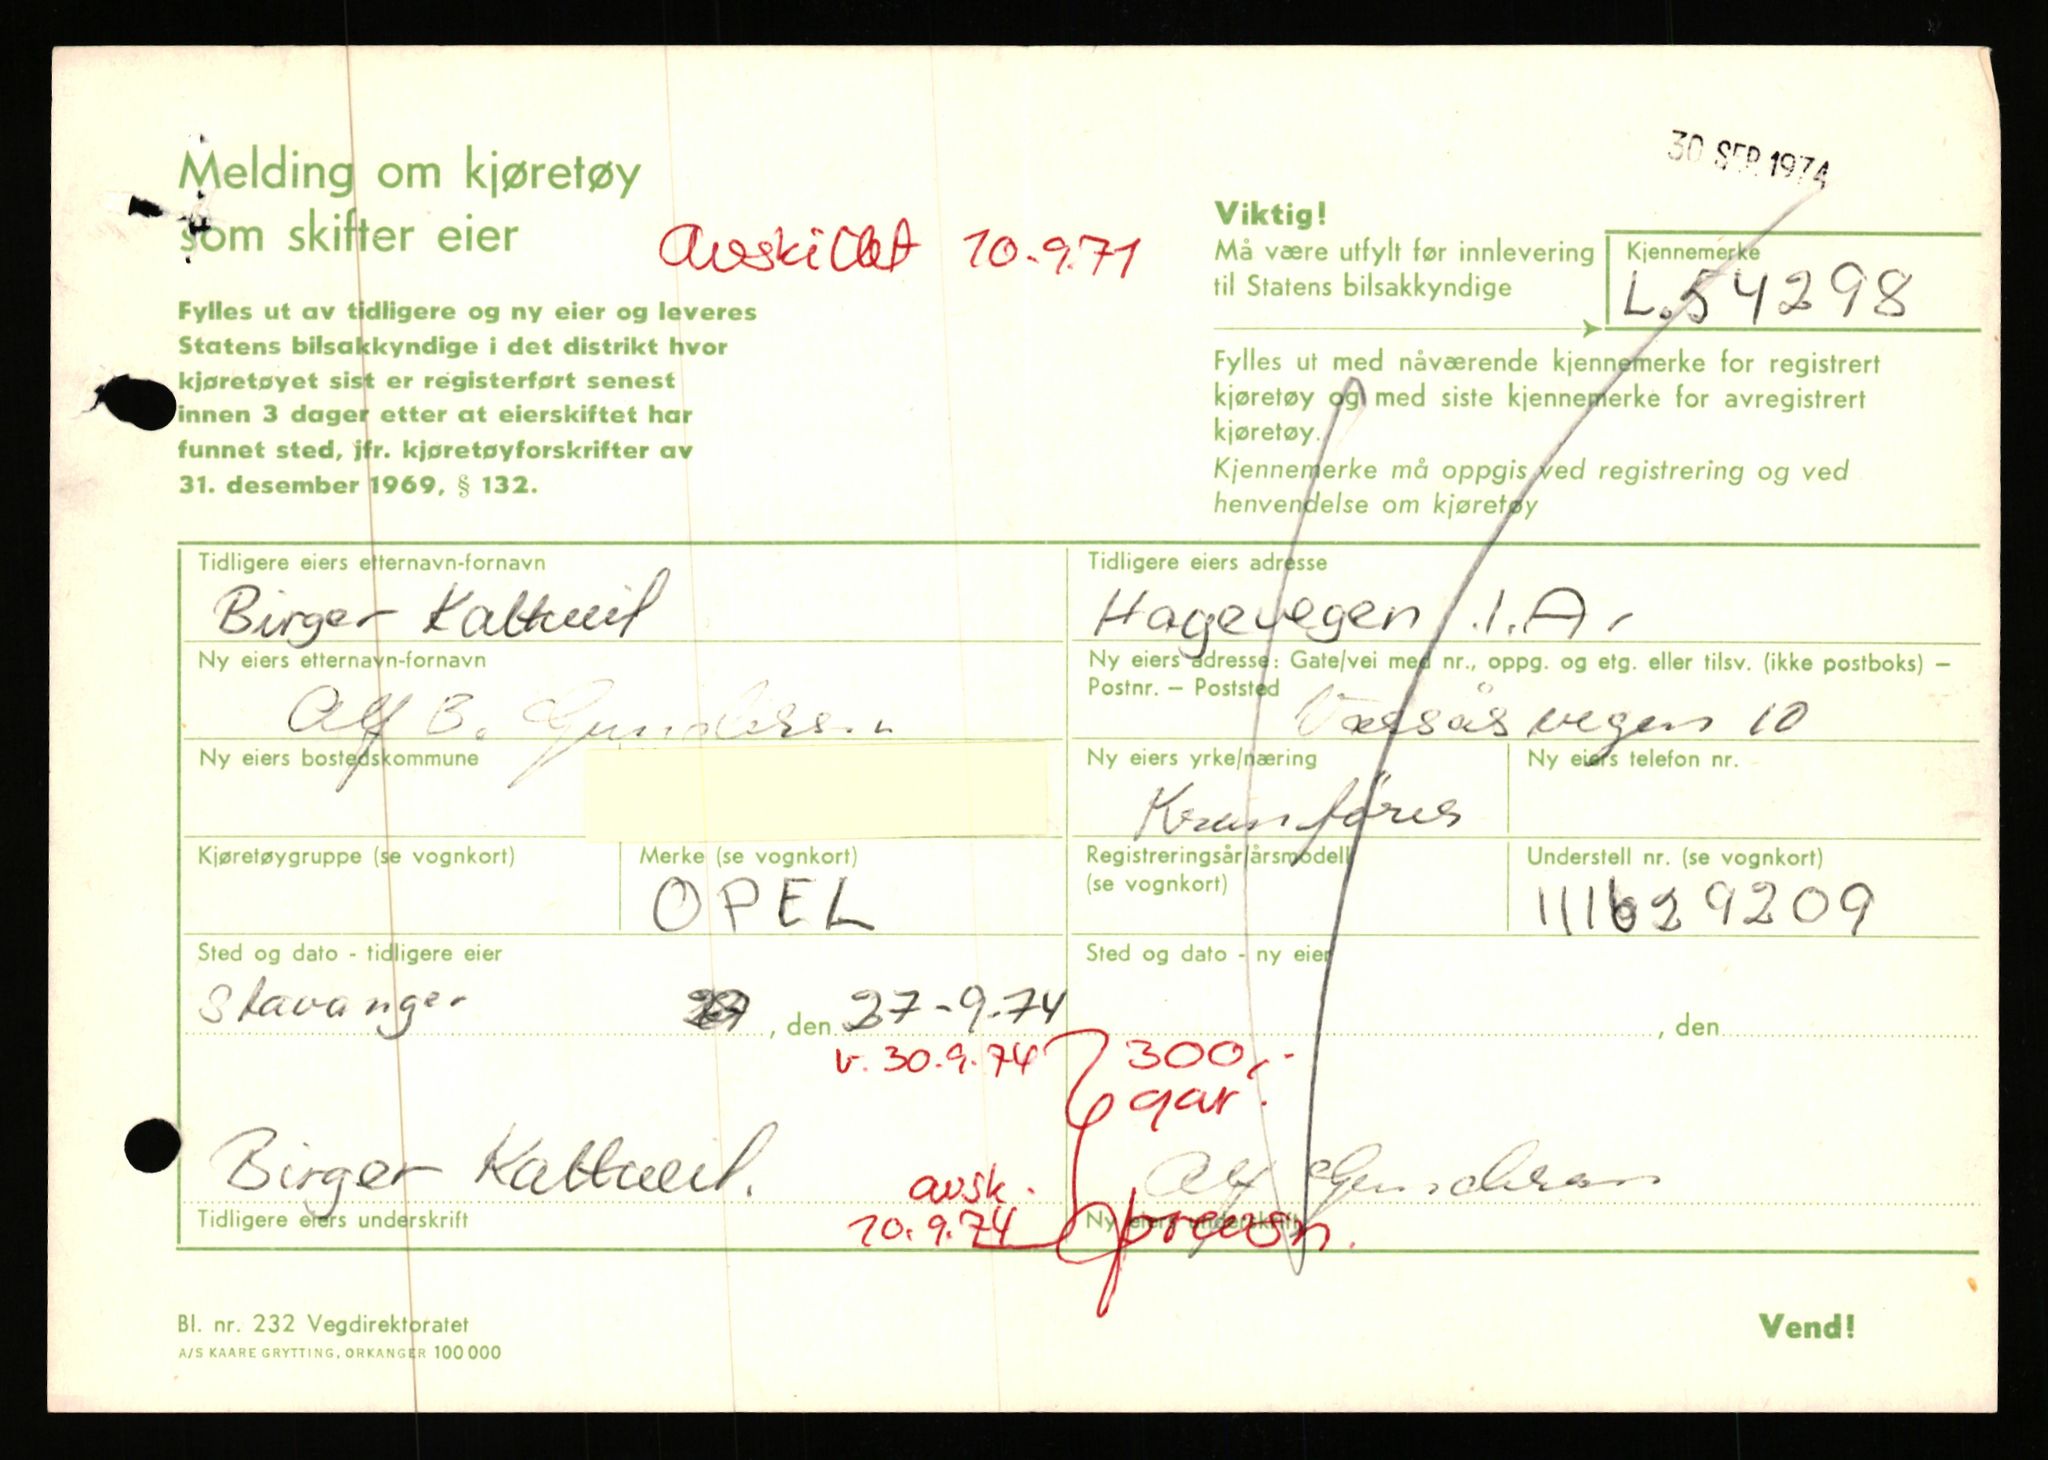 30 SEP. 1974
Melding om kjøretøy
som skifter eier
Avskiltet 10.9.71
Fylles ut av tidligere og ny eier og leveres
Statens bilsakkyndige i det distrikt hvor
kjøretøyet sist er registerført senest
innen 3 dager etter at eierskiftet har
funnet sted, jfr. kjøretøyforskrifter av
31. desember 1969, § 132.
Viktig!
Må være utfylt før innlevering
til Statens bilsakkyndige
Kjennemerke
L.54298
Fylles ut med nåværende kjennemerke for registrert
kjøretøy og med siste kjennemerke for avregistrert
kjøretøy.
Kjennemerke må oppgis ved registrering og ved
henvendelse om kjøretøy
Tidligere eiers etternavn-fornavn
Birger Kaltveit
Tidligere eiers adresse
Hagevegen 1.A.
Ny eiers etternavn-fornavn
Alf B. Gundersen
Ny eiers adresse: Gate/vei med nr., oppg. og etg. eller tilsv. (ikke postboks) –
Postnr. – Poststed
vegen 10
Ny eiers bostedskommune
Ny eiers yrke/næring
Kranfører
Ny eiers telefon nr.
Kjøretøygruppe (se vognkort)
Merke (se vognkort)
OPEL
Registreringsår/årsmodell
(se vognkort)
Understell nr. (se vognkort)
111629209
Sted og dato - tidligere eier
Stavanger , den 27-9-74
Sted og dato - ny eier
, den
v. 30.9.74
300,-
gar.
Birger Kaltveit.
avsk.
10.9.74
Alf Gundersen
Tidligere eiers underskrift
Ny eiers underskrift
Bl. nr. 232 Vegdirektoratet
A/S KAARE GRYTTING, ORKANGER 100 000
Vend!